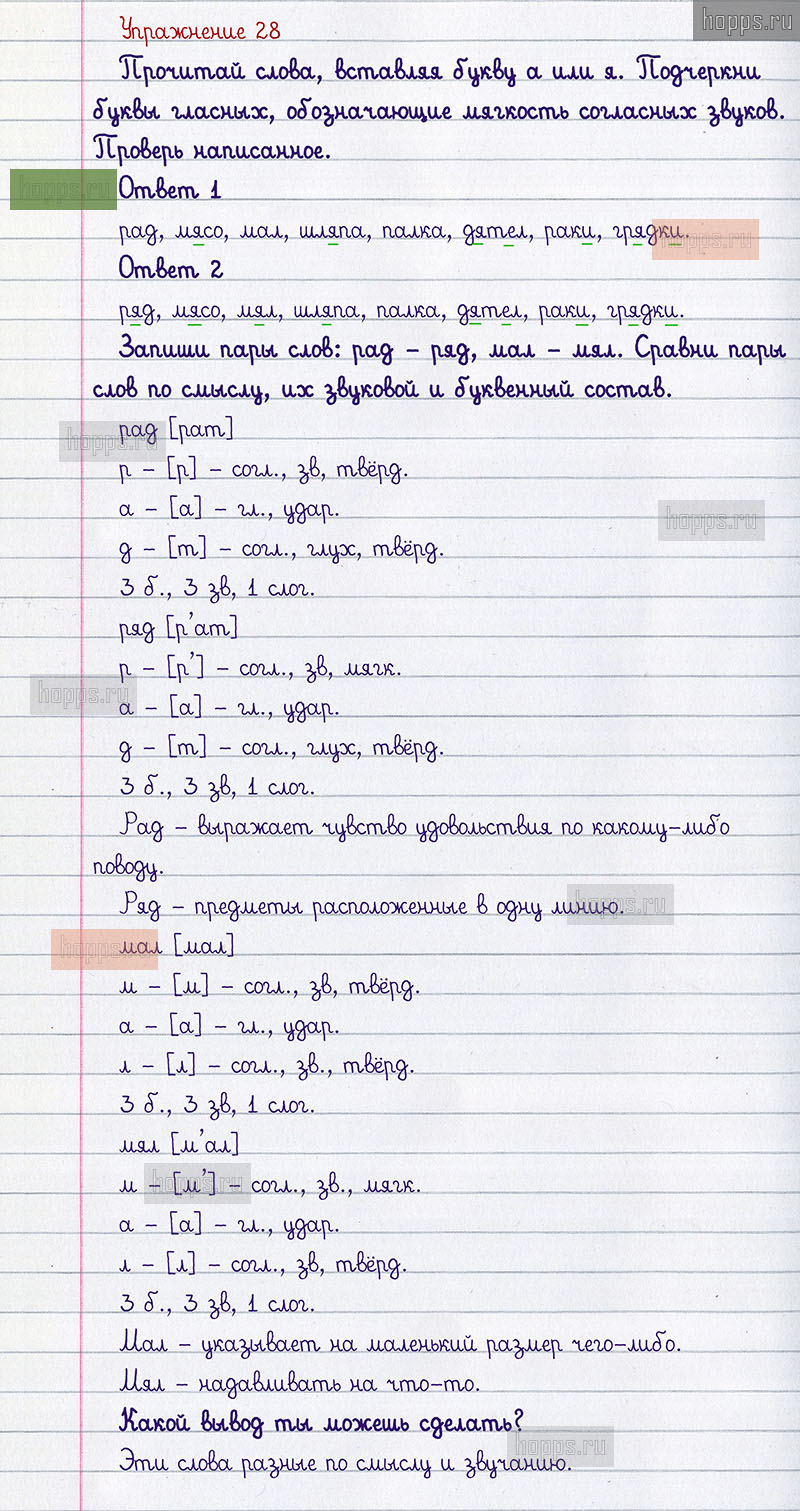 hopps.ru
Упражнение 28
Прочитай слова, вставляя букву а или я. Подчеркни
буквы гласных, обозначающие мягкость согласных звуков.
Проверь написанное.
hopps.ru
Ответ 1
рад, мясо, мал, шляпа, палка, дятел, раки, грядки.
hopps.ru
Ответ 2
ряд, мясо, мял, шляпа, палка, дятел, раки, грядки.
Запиши пары слов: рад – ряд, мал – мял. Сравни пары
слов по смыслу, их звуковой и буквенный состав.
hopps.ru
рад [рат]
р – [р] – согл., зв, твёрд.
а – [а] – гл., удар.
hopps.ru
д – [т] – согл., глух, твёрд.
3 б., 3 зв, 1 слог.
ряд [р'ат]
р – [р'] – согл., зв, мягк.
hopps.ru
а – [а] – гл., удар.
д – [т] – согл., глух, твёрд.
3 б., 3 зв, 1 слог.
Рад – выражает чувство удовольствия по какому-либо
поводу.
Ряд – предметы расположенные в одну линию.
hopps.ru
hopps.ru
мал [мал]
м – [м] – согл., зв, твёрд.
а – [а] – гл., удар.
л – [л] – согл., зв., твёрд.
3 б., 3 зв, 1 слог.
мял [м'ал]
hopps.ru
м – [м'] – согл., зв., мягк.
а – [а] – гл., удар.
л – [л] – согл., зв, твёрд.
3 б., 3 зв, 1 слог.
Мал – указывает на маленький размер чего-либо.
Мял – надавливать на что-то.
Какой вывод ты можешь сделать?
hopps.ru
Эти слова разные по смыслу и звучанию.